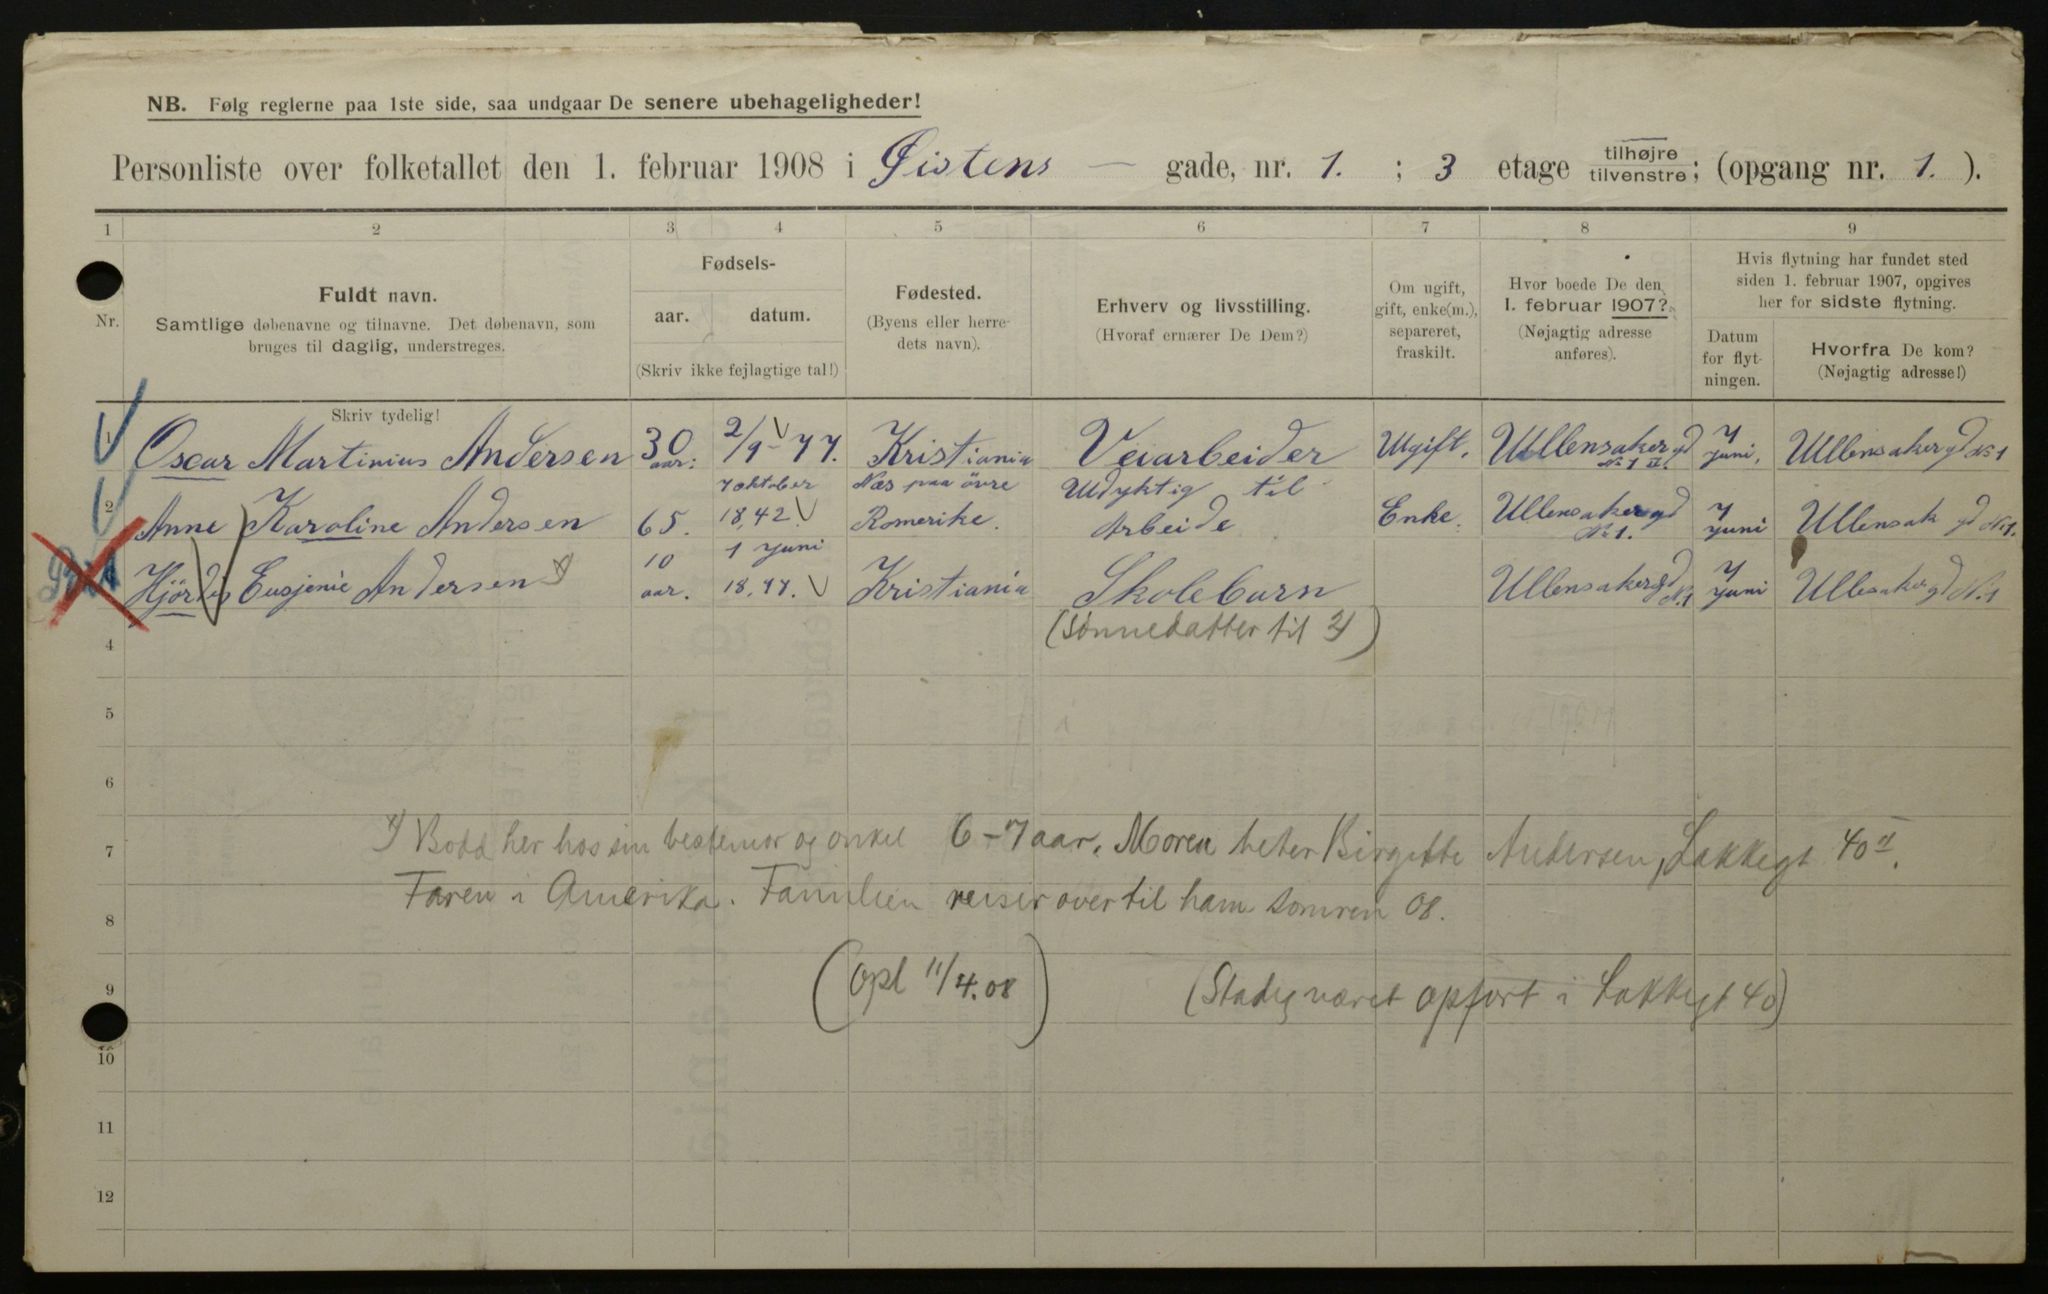 NB. Følg reglerne paa 1ste side, saa undgaar De senere ubehageligheder!
Personliste over folketallet den 1. februar 1908 i Øistens — gade, nr. 1. ; 3 etage tilhøjre tilvenstre; (opgang nr. 1.).
1 2 3 4 5 6 7 8 9
Nr.
Fuldt navn.
Samtlige døbenavne og tilnavne. Det døbenavn, som
bruges til daglig, understreges.
Skriv tydelig!
Fødsels-
aar. datum.
(Skriv ikke fejlagtige tal!)
Fødested.
(Byens eller herre-
dets navn).
Erhverv og livsstilling.
(Hvoraf ernærer De Dem?)
Om ugift,
gift, enke(m.),
separeret,
fraskilt.
Hvor boede De den
1. februar 1907?
(Nøjagtig adresse
anføres).
Hvis flytning har fundet sted
siden 1. februar 1907, opgives
her for sidste flytning.
Datum
for flyt-
ningen.
Hvorfra De kom?
(Nøjagtig adresse!)
1 Oscar Martinius Andersen 30 aar. 2/9-77. Kristiania Veiarbeider Ugift. Ullensakergd No 1 II. 7 juni. Ullensakergd No 1
2 Anne Karoline Andersen 65. 7 oktober 18,42. Næs paa övre Romerike. Udyktig til Arbeide Enke. Ullensakergd No 1. 7 juni Ullensak gd No 1.
Hjördis Eusjenie Andersen 10 aar. 1 juni 18,97. Kristiania Skolebarn Ullensakergd No 1 7 juni Ullesakergd No 1
(Sønnedatter til 2)
4
5
6
7
x) Bodd her hos sin bestemor og onkel 6-7 aar. Moren heter Birgitte Andersen, Lakkegt 40 II.
Faren i Amerika. Familien reiser over til ham somren 08.
8
(opl 11/4.08)
9
(Stadig været opført i Lakkegt 40)
10
11
12